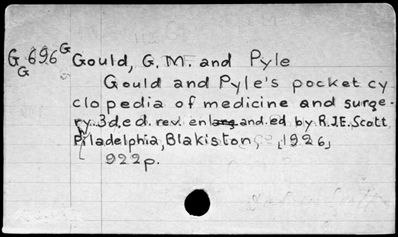 G 696 G Gould, G. M. and Pyle
G
Gould and Pyle's pocket cy
clopedia of medicine and surge-
ry. 3d.ed. rev. enlarg and.ed by. R.J.E. Scott
Philadelphia, Blakiston, 1926
922p.